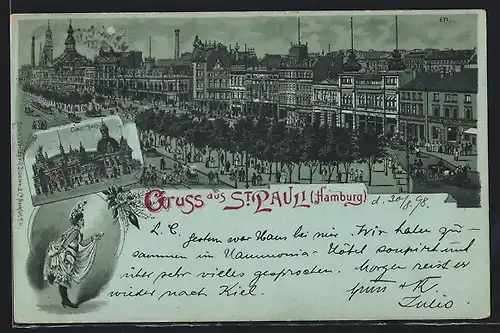 671.
Gruss aus St. Pauli (Hamburg)
d. 30/8. 98.
L. C. Gestern war Hans bei mir. Wir haben zu-
sammen im Hammonia-Hôtel soupirt und
über sehr vieles gesprochen. Morgen reist er
wieder nach Kiel.
Gruss + K
Julio.